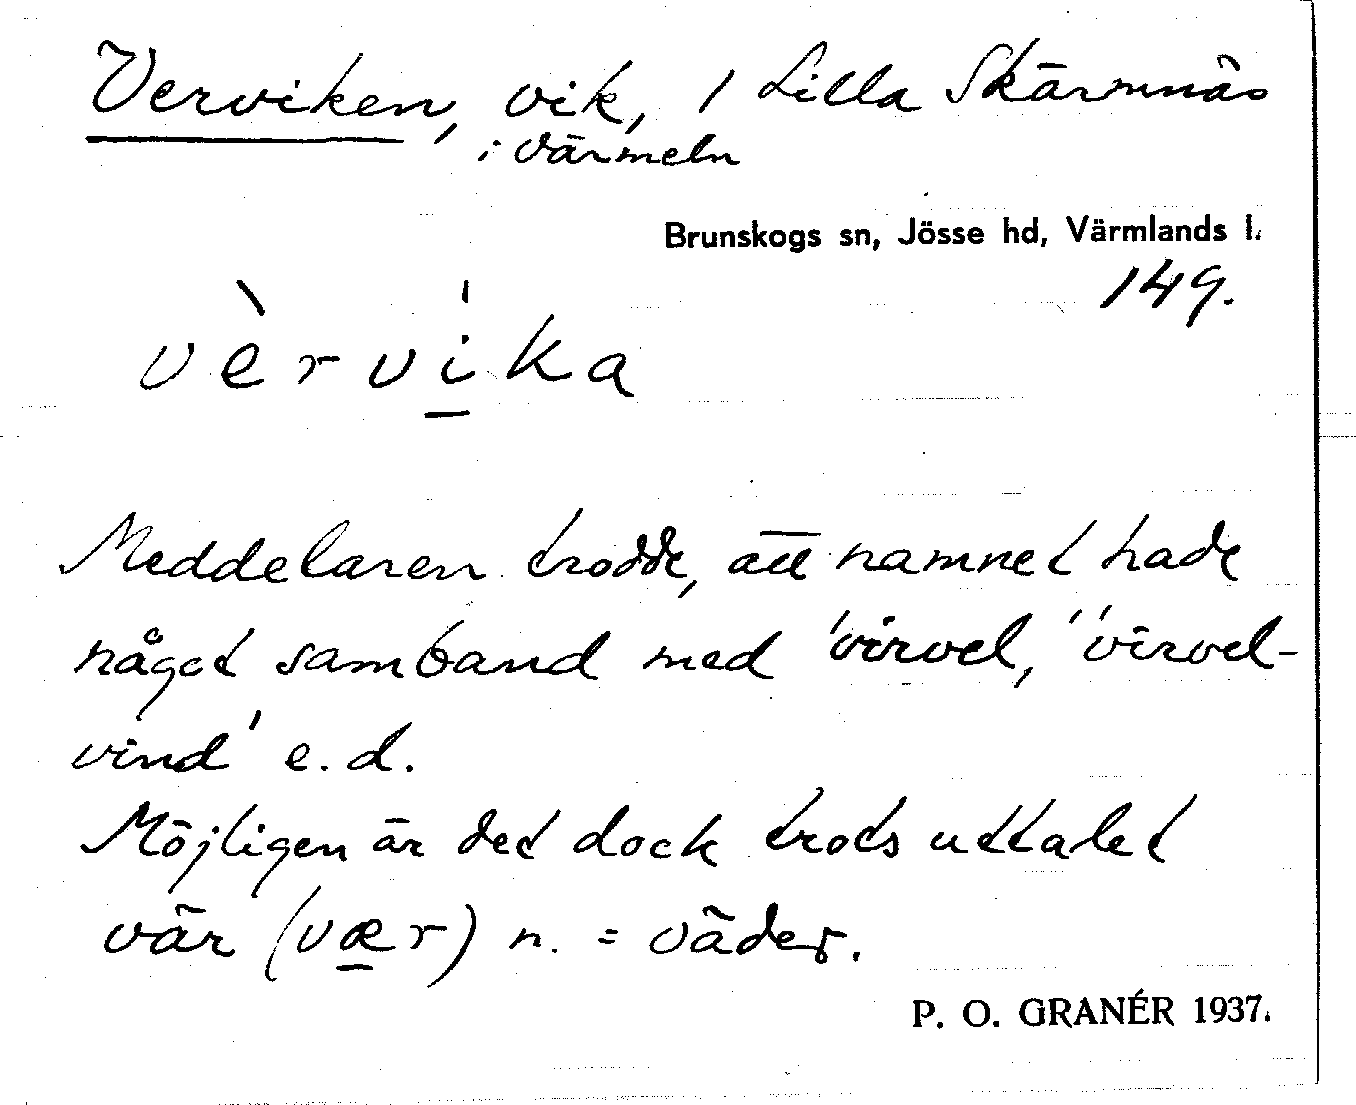 Verviken, vik, 1 Lilla Skärmnäs
i Värmeln
Brunskogs sn, Jösse hd, Värmlands l.
149.
vèrvíka
Meddelaren trodde, att namnet hade
något samband med 'virvel,' 'virvel-
vind' e.d.
Möjligen är det dock trots uttalet
vär (vær) n. = väder.
P. O. GRANÉR 1937.